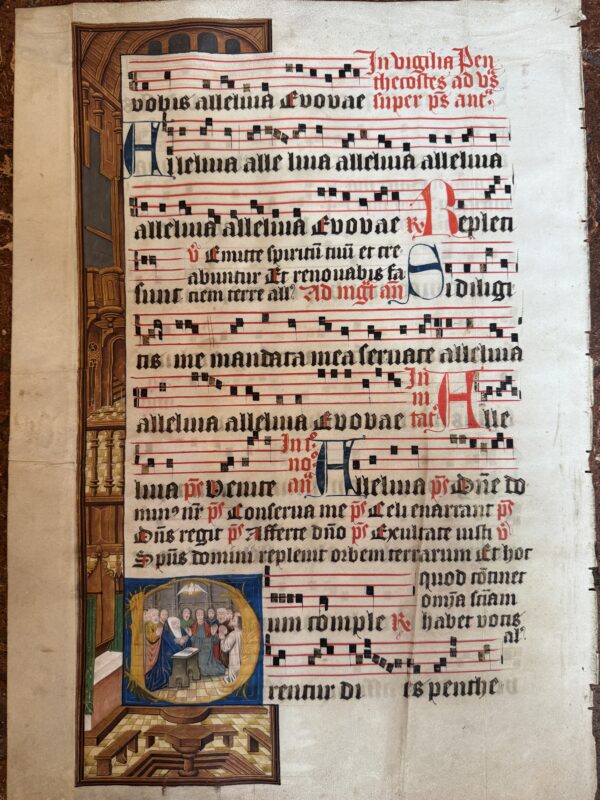 vobis alleluia Evovae In vigilia Pen
thecostes ad vs̄
super ps̄ ant.
Alleluia alle luia alleluia alleluia
alleluia alleluia Evovae R Repleti
sunt
v Emitte spiritū tuū et cre
abuntur Et renovabis fa
ciem terre all. Ad mgt an̄ Si diligi
tis me mandata mea servate alleluia
alleluia alleluia Evovae In
vi
tat. Alle
luia ps̄ Venite In p.
no.
an̄ Alleluia ps̄ Dn̄e do
minꝰ nr̄ ps̄ Conserva me ps̄ Celi enarrant ps̄
Dn̄s regit ps̄ Afferte dn̄o ps̄ Exultate iusti v
Spūs domini replevit orbem terrarum Et hoc
quod cōtinet
om̄ia sciam
habet vocis
al.
Cum comple R
rentur di es penthe